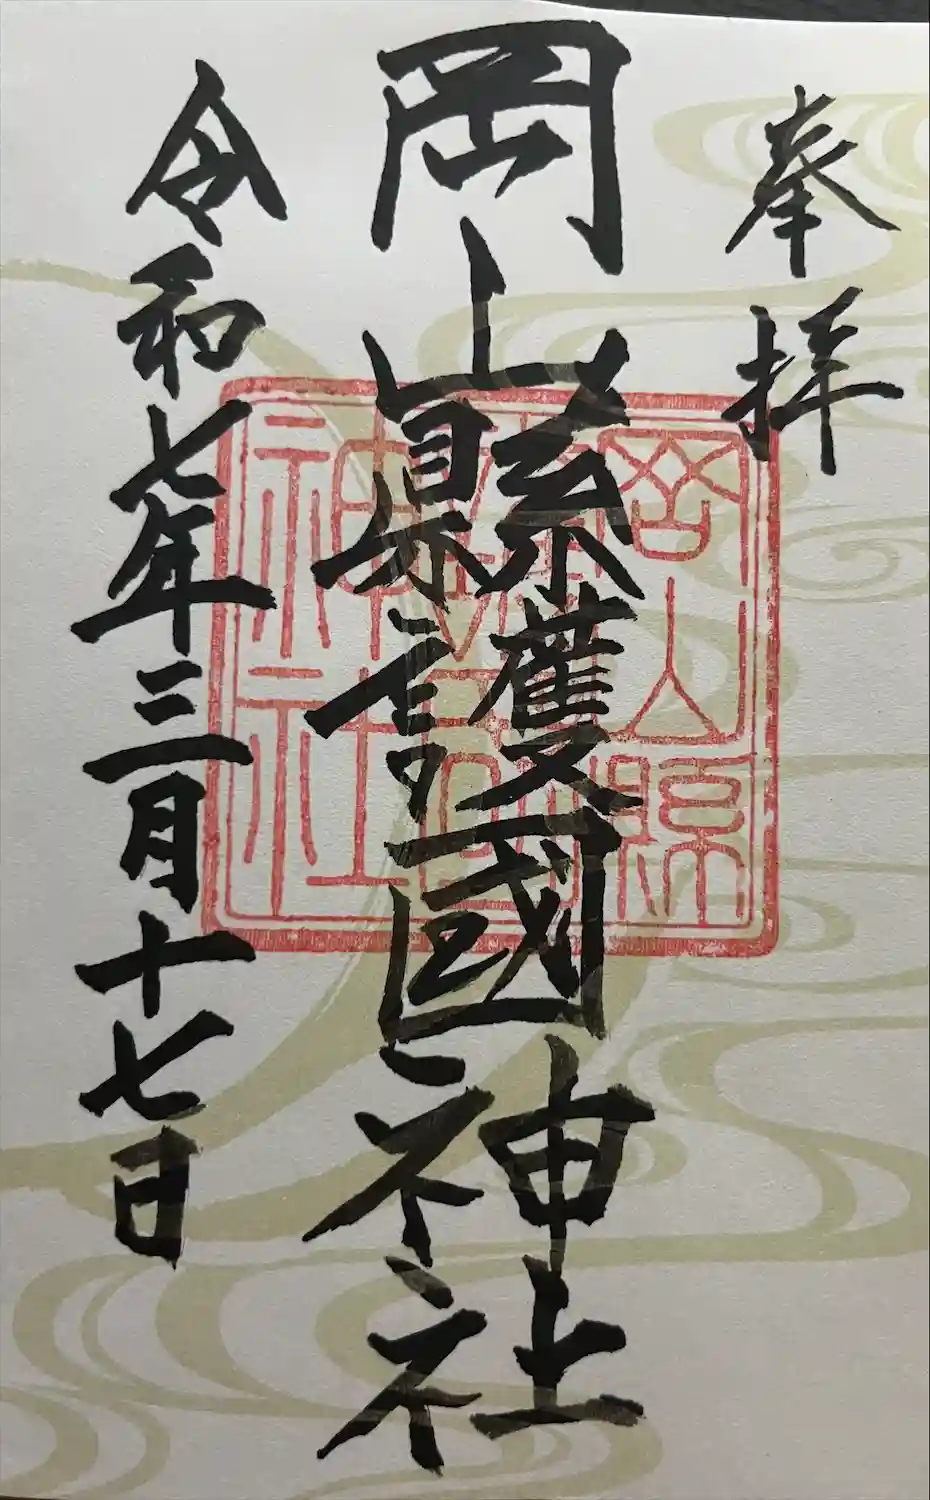 奉拝
岡山縣護國神社
岡山県
護國
神社
令和七年三月十七日